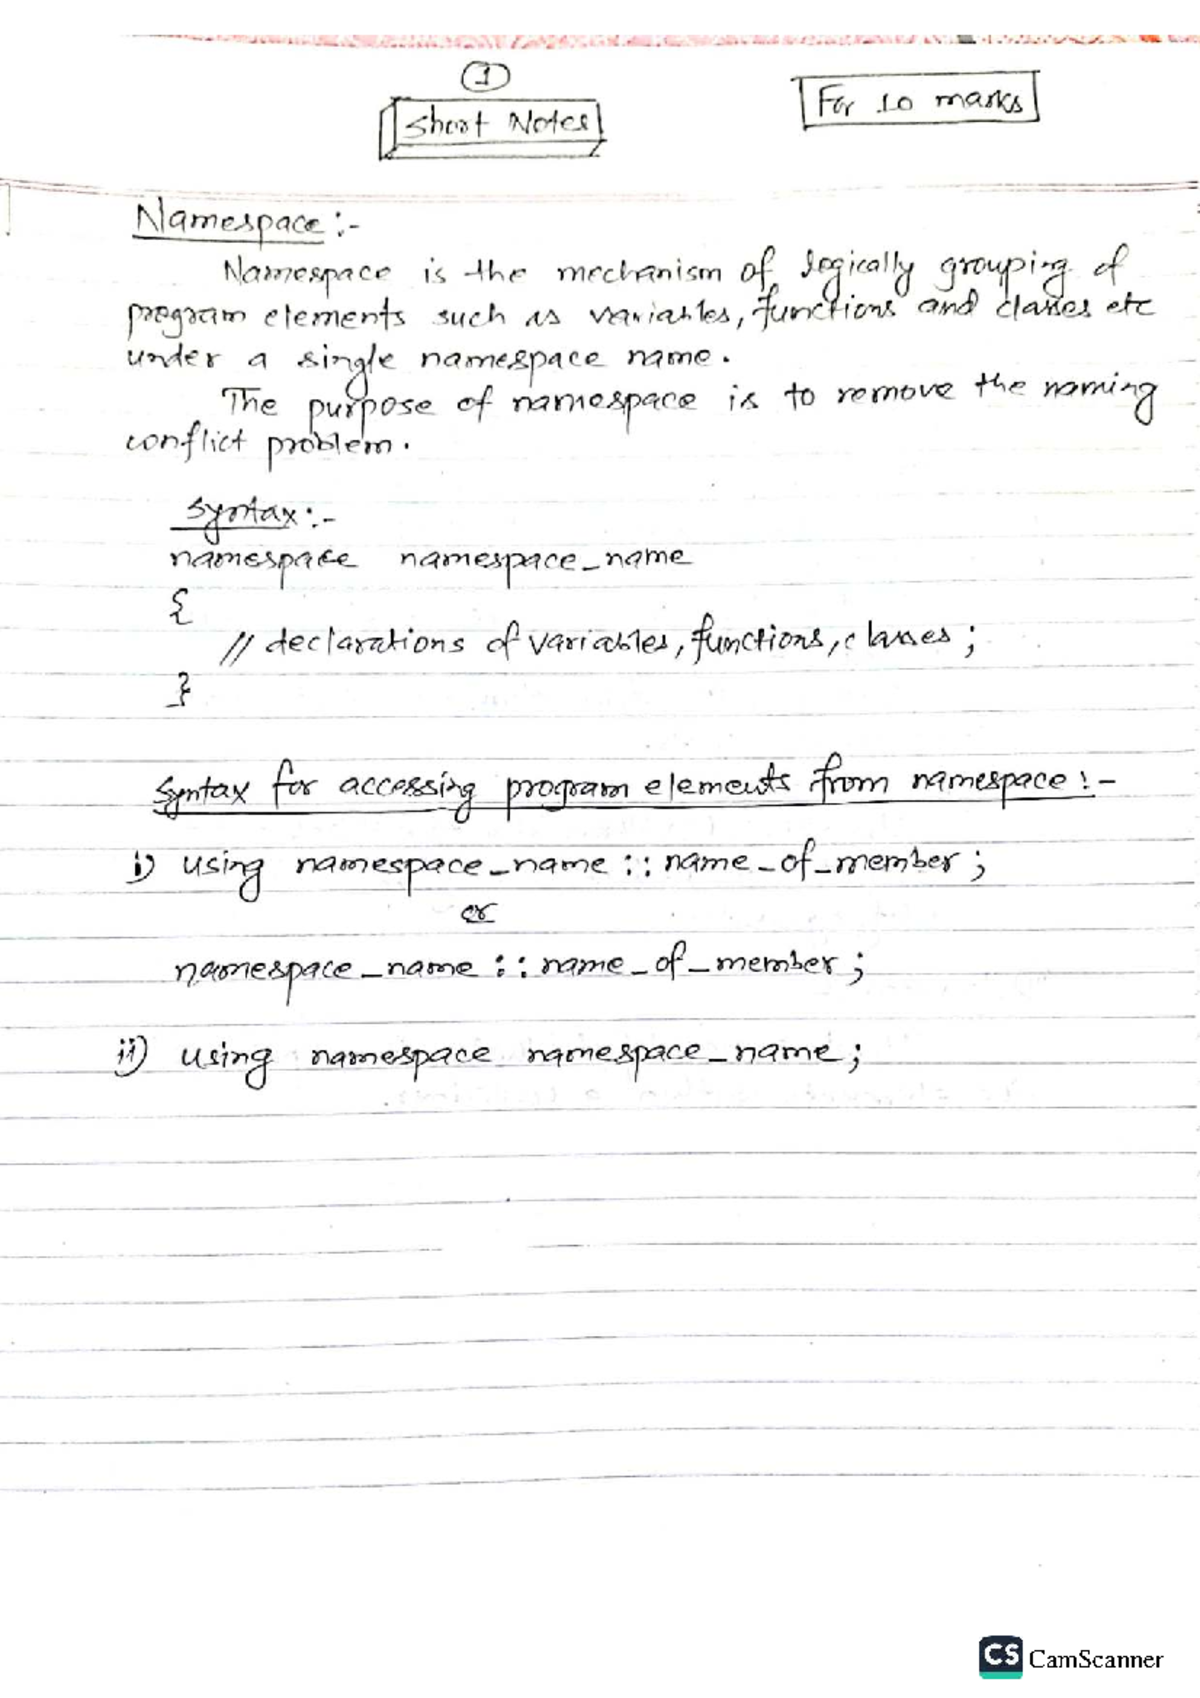 1
Short Notes
For 10 marks
Namespace :-
Namespace is the mechanism of logically grouping of
program elements such as variables, functions and classes etc
under a single namespace name.
The purpose of namespace is to remove the naming
conflict problem.
Syntax :-
namespace namespace_name
{
// declarations of variables, functions, classes ;
}
Syntax for accessing program elements from namespace :-
i) using namespace_name :: name_of_member ;
or
namespace_name :: name_of_member ;
ii) using namespace namespace_name ;
CS CamScanner